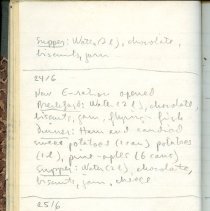 Supper: Water (2 l), chocolate,
biscuits, jam
24/6
New E-ration opened
Breakfast: Water (2 l), chocolate,
biscuit, jam, flying-fish
Dinner: Ham and candied
sweet potatoes (1 can) potatoes
(1 l), pine-apples (6 cans)
Supper: Water (2 l), chocolate,
biscuits, jam, cheese
25/6